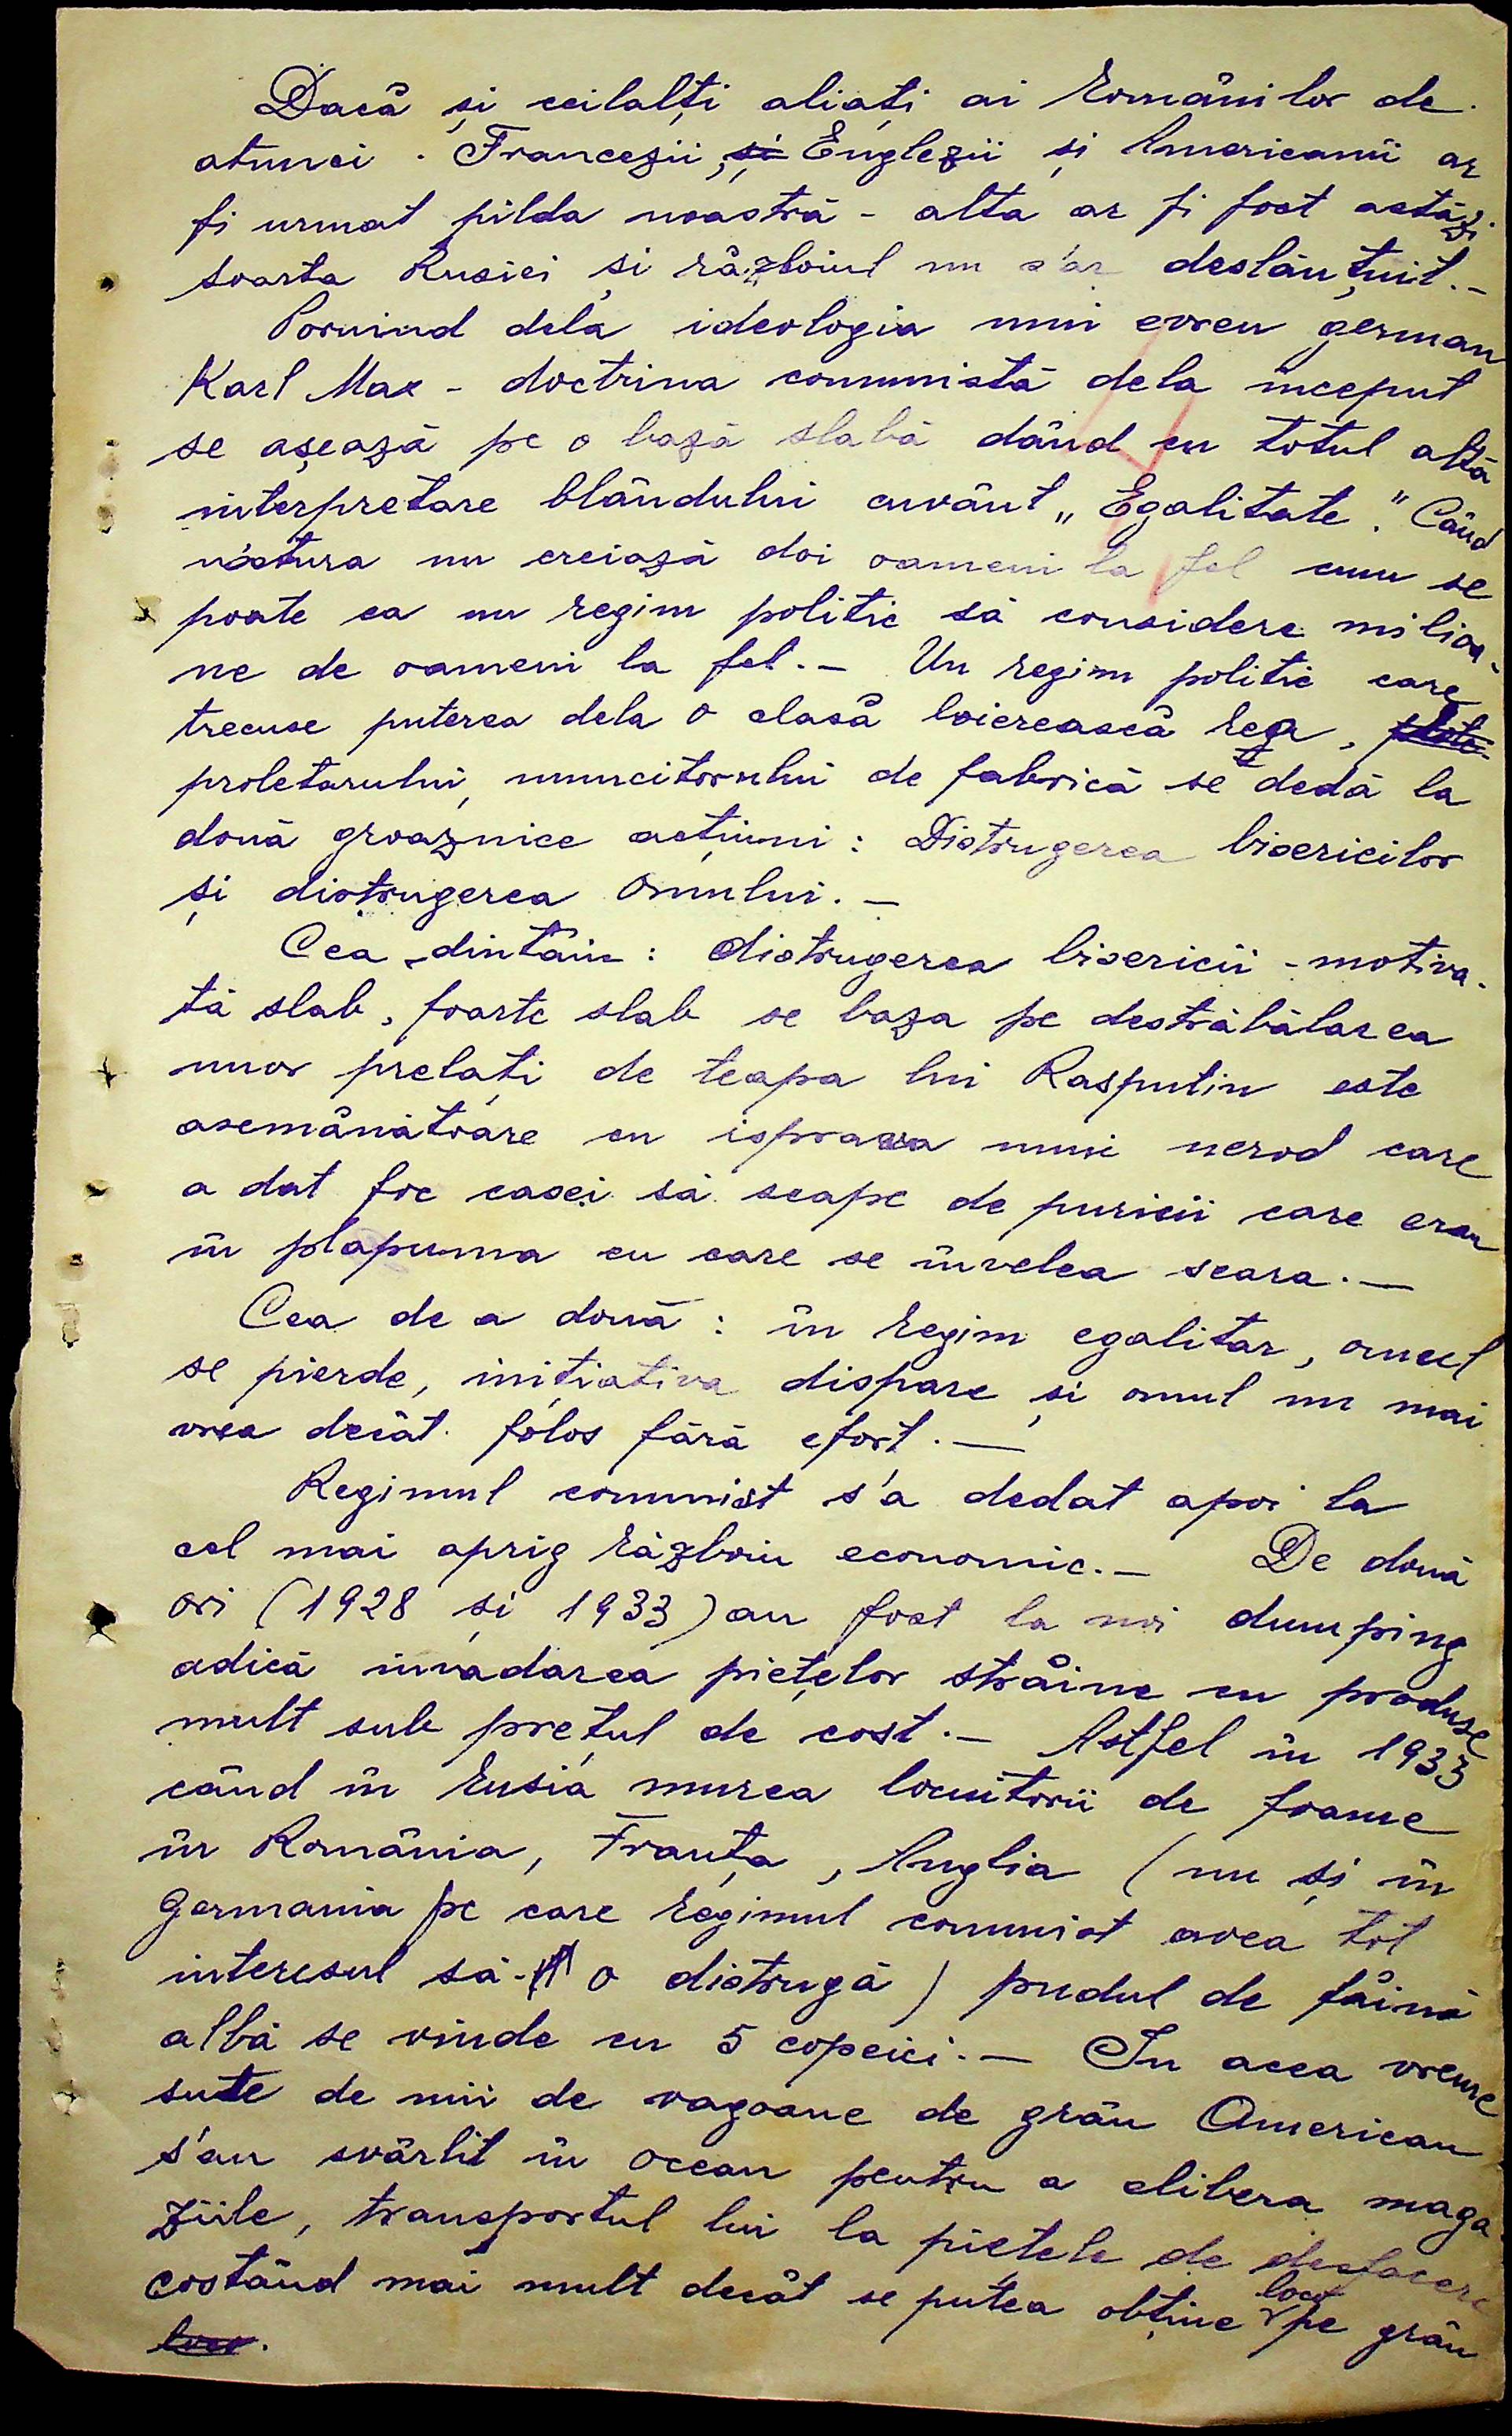 Dacă și ceilalți aliați ai Românilor de
atunci - Francezii, și Englezii și Americanii ar
fi urmat pilda noastră - alta ar fi fost astăzi
soarta Rusiei și războiul nu s'ar deslănțuit.-
Pornind dela ideologia unui evreu german
Karl Max - doctrina comunistă dela început
se așează pe o bază slabă dând cu totul altă
interpretare blândului cuvânt „Egalitate." Când
natura nu creiază doi oameni la fel cum se
poate ca un regim politic să considere milioa-
ne de oameni la fel.- Un regim politic care
trecuse puterea dela o clasă boierească rea,
proletarului, muncitorului de fabrică se dedă la
două groaznice acțiuni: Distrugerea bisericilor
și distrugerea omului.-
Cea dintâiu: distrugerea bisericii - motiva-
tă slab, foarte slab se baza pe destrăbălarea
unor prelați de teapa lui Rasputin este
asemănătoare cu isprava unui nerod care
a dat foc casei să scape de puricii care erau
în plapuma cu care se învelea seara.-
Cea de a două: în regim egalitar, omul
se pierde, inițiativa dispare și omul nu mai
vrea decât folos fără efort.-
Regimul comunist s'a dedat apoi la
cel mai aprig războiu economic.- De două
ori (1928 și 1933) au fost la noi dumping
adică invadarea piețelor străine cu produse
mult sub prețul de cost.- Astfel în 1933
când în Rusia murea locuitorii de foame
în România, Franța, Anglia (nu și în
Germania pe care regimul comunist avea tot
interesul să-o distrugă) pudul de făină
albă se vinde cu 5 copeici.- In acea vreme
sute de mii de vagoane de grâu American
s'au svârlit în ocean pentru a elibera maga-
ziile, transportul lui la piețele de desfacere
costând mai mult decât se putea obține loco pe grâu
loco.